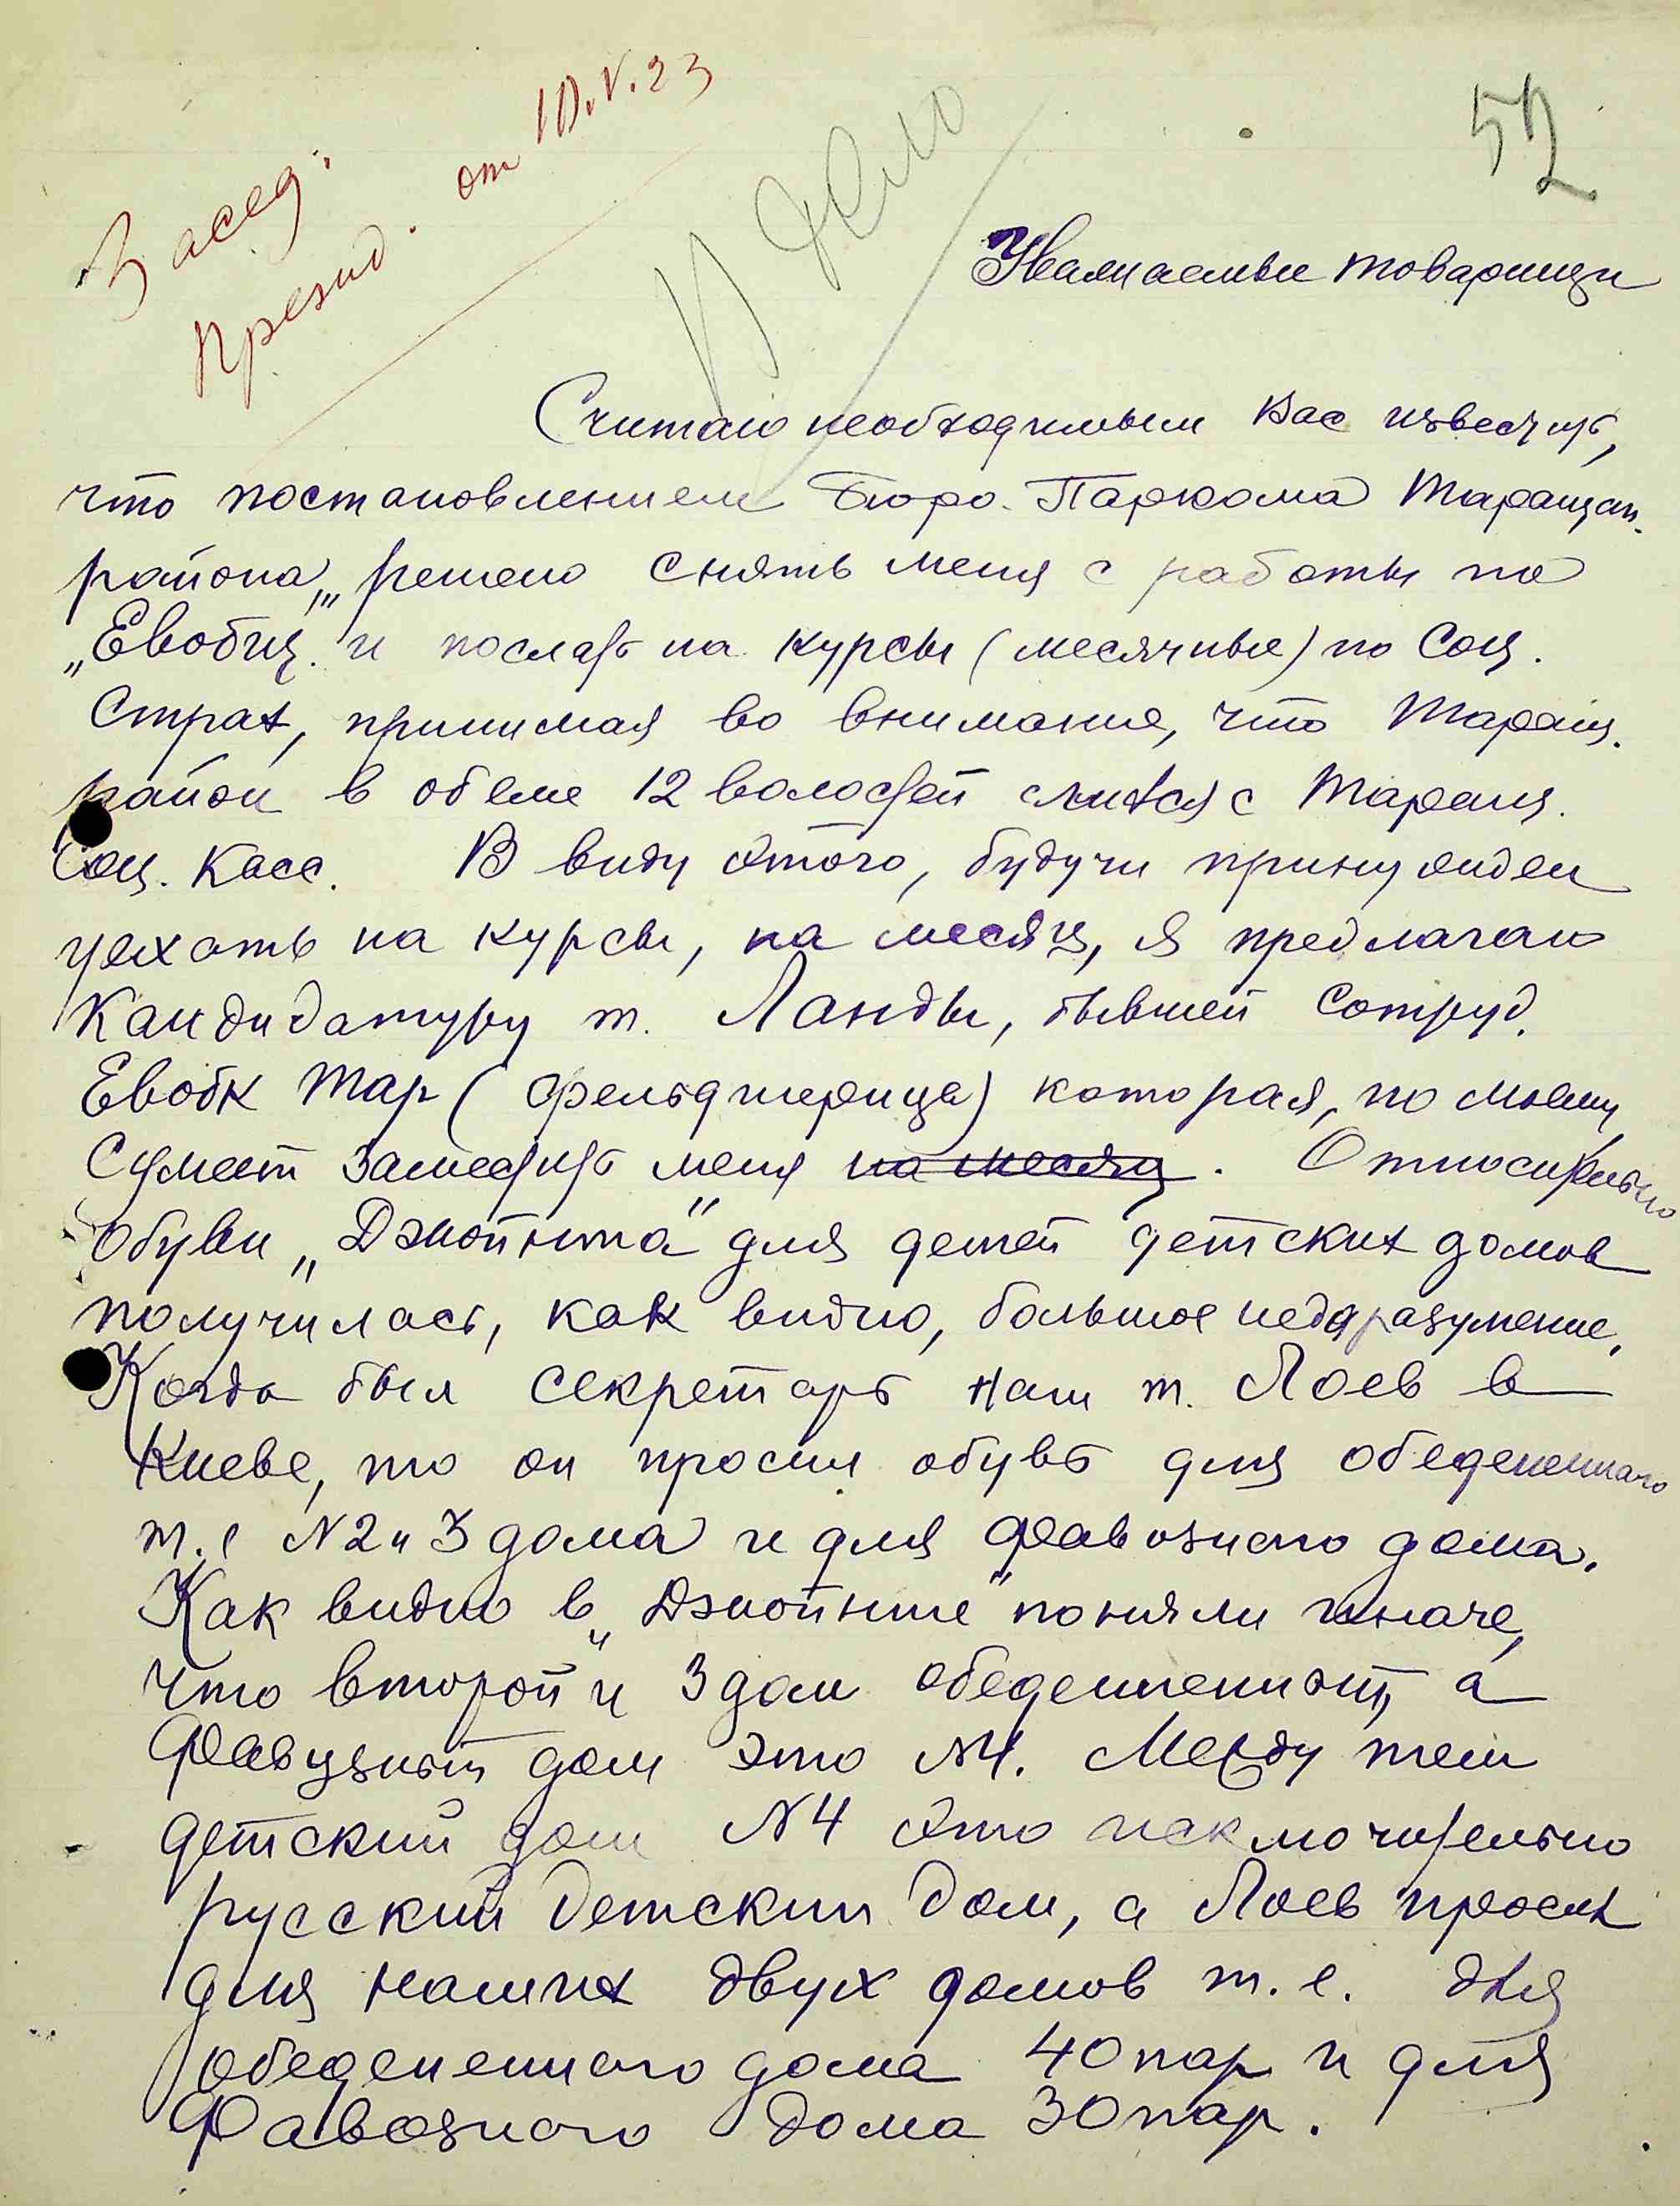 52
Засед.
Презид. от 10.V.23
К делу
Уважаемые товарищи
Считаю необходимым Вас известить,
что постановлением Бюро Парткома Таращан.
района, решено снять меня с работы по
„Евобщ." и послать на курсы (месячные) по Соц.
Страх, принимая во внимание, что Таращ.
район в обеме 12 волостей слился с Таращ.
Соц. Касс. В виду этого, будучи принужден
уехать на курсы, на месяц, я предлагаю
кандидатуру т. Ланды, бывшей сотруд.
Евобк Тар (фельдшерица) которая, по моему
сумеет заместить меня на месяц. Относительно
обуви „Джойнта" для детей детских домов
получилась, как видно, большое недоразумение,
Когда был секретарь наш т. Лоев в
Киеве, то он просил обувь для обедененного
т.е N2 и 3 дома и для Фавозного дома.
Как видно в „Джойнте" поняли иначе,
что второй и 3 дом обедененный, а
Фавузный дом это N4. Между тем
детский дом N4 это исключительно
русский детский дом, а Лоев просил
для наших двух домов т.е. для
обедененного дома 40 пар и для
Фавозного дома 30 пар.